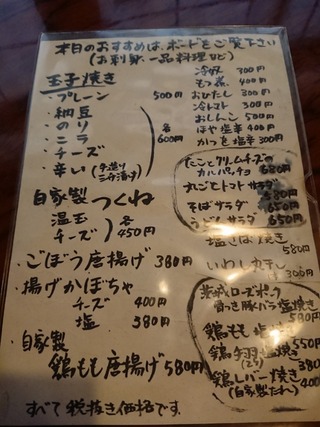 本日のおすすめは、ボードをご覧下さい
(お刺身、一品料理など)
玉子焼き
・プレーン 500円
・納豆
・のり
・ニラ
・チーズ
・辛い
各
600円
自家製 つくね
温玉
チーズ
各
450円
・ごぼう唐揚げ 380円
・揚げかぼちゃ
チーズ 400円
塩 380円
・自家製
鶏もも唐揚げ 580円
すべて税抜き価格です。
冷奴 300円
もつ煮 400円
おひたし 300円
冷トマト 300円
おしんこ 500円
ほや塩辛 400円
かつを塩辛 300円
たことクリームチーズの
カルパッチョ 680円
丸ごとトマトサラダ
580円
そばサラダ 650円
うどんサラダ 650円
塩さば焼き
580円
いわし丸干し
300円
茨城ローズポーク
骨つき豚バラ塩焼き
590円
鶏もも塩焼き
550円
鶏手羽塩焼き
380
鶏レバー焼き
(自家製だれ) 400円